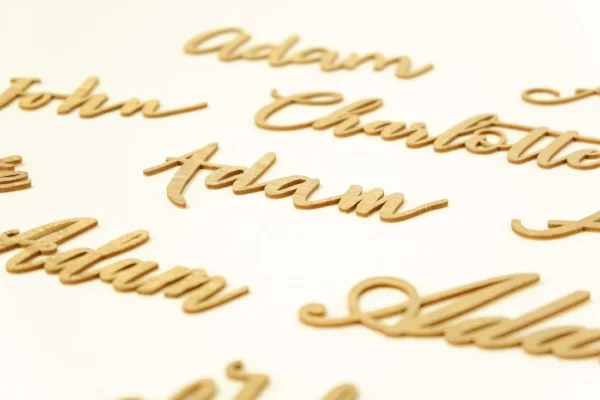 Adam
John
Charlotte
Adam
Adam
Adam